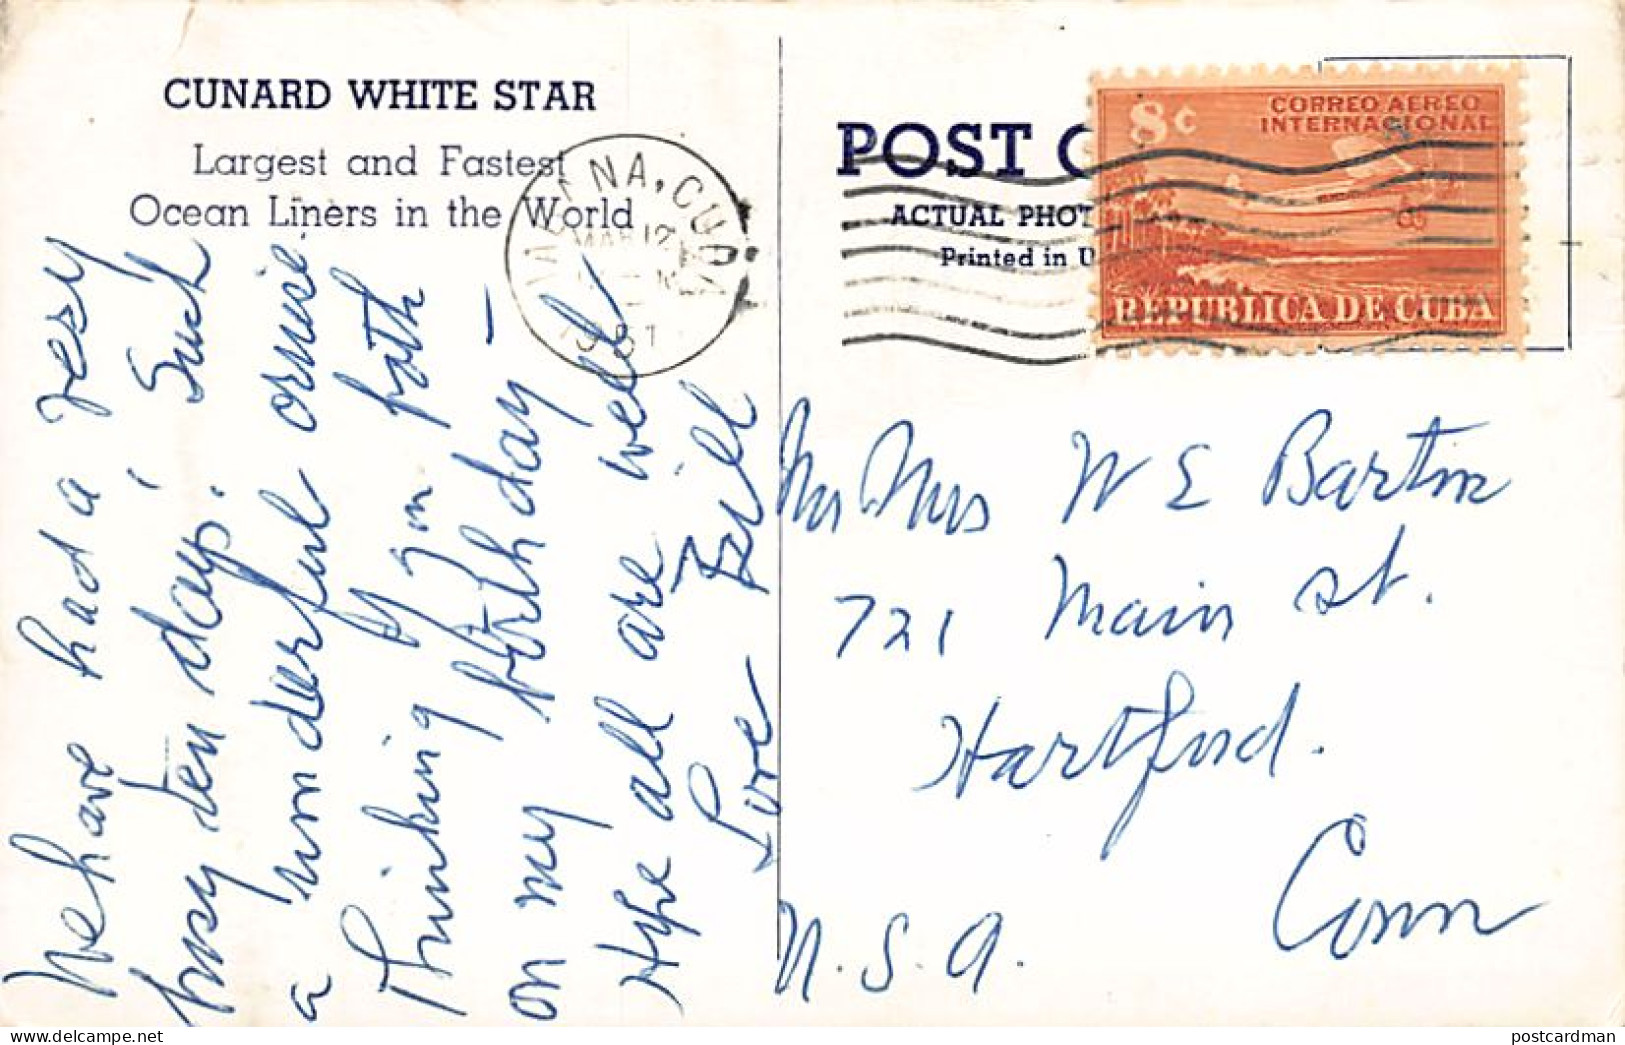 CUNARD WHITE STAR
Largest and Fastest
Ocean Liners in the World
We have had a very
busy ten days. Such
a wonderful cruise
Thinking of you both
on my birthday —
Hope all are well
Love Bill
HABANA, CUBA
MAR 12
1951
POST C
ACTUAL PHOT
Printed in U
8c
CORREO AEREO
INTERNACIONAL
REPUBLICA DE CUBA
Mr Mrs W E Bartin
721 Main St.
Hartford.
Conn
U.S.A.
delcampe.net
postcardman